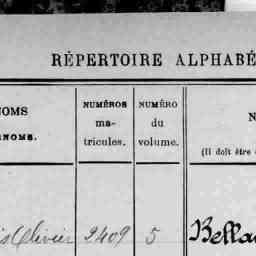 RÉPERTOIRE ALPHABÉ
NOMS
NOMS.
NUMÉROS
ma-
tricules.
NUMÉRO
du
volume.
N
(Il doit être
Olivier 2409 5 Bella